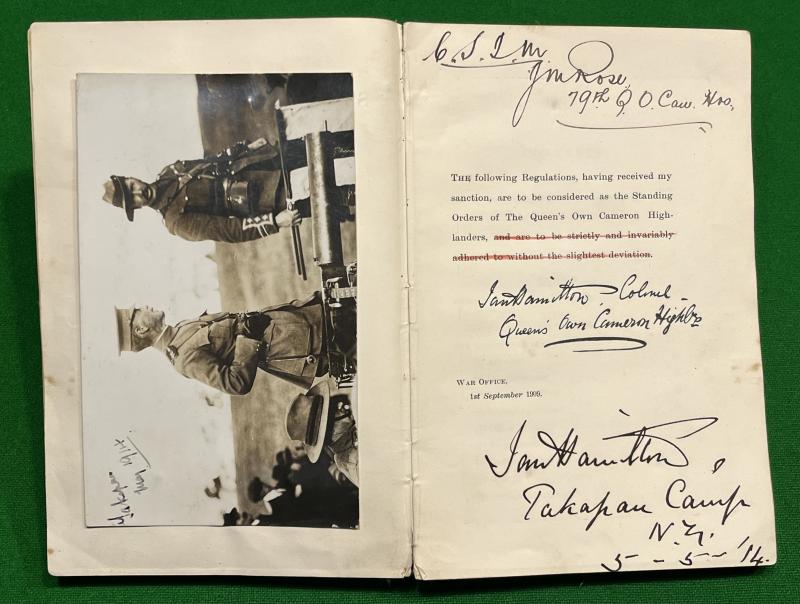 Takapau
May 1914.
C. S. I. M.
J M Rose,
79th Q. O. Cam. Hrs,
THE following Regulations, having received my
sanction, are to be considered as the Standing
Orders of The Queen's Own Cameron High-
landers, and are to be strictly and invariably
adhered to without the slightest deviation.
Ian Hamilton. Colonel -
Queen's Own Cameron Highrs
WAR OFFICE,
1st September 1909.
Ian Hamilton,
Takapau Camp
N.Z.
5 - 5 - '14.